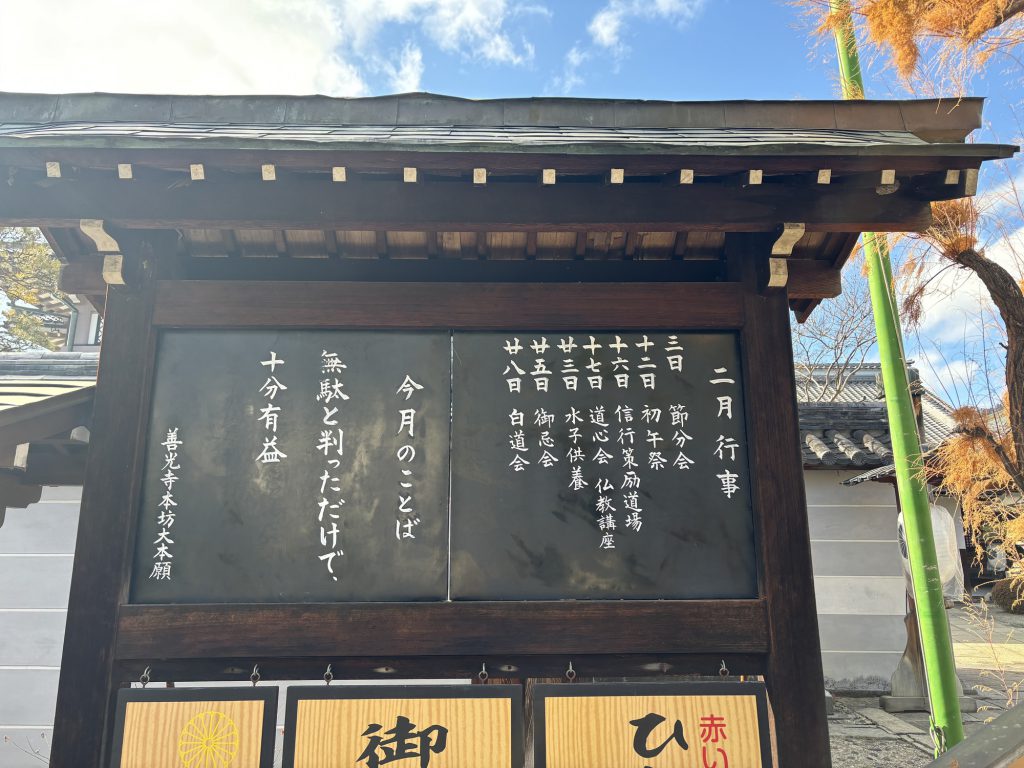 二月 行事
三日 節分会
十二日 初午祭
十六日 信行策励道場
十七日 道心会 仏教講座
廿三日 水子供養
廿五日 御忌会
廿八日 白道会
今月のことば
無駄と判っただけで、
十分有益
善光寺本坊大本願
赤い
ひ
御